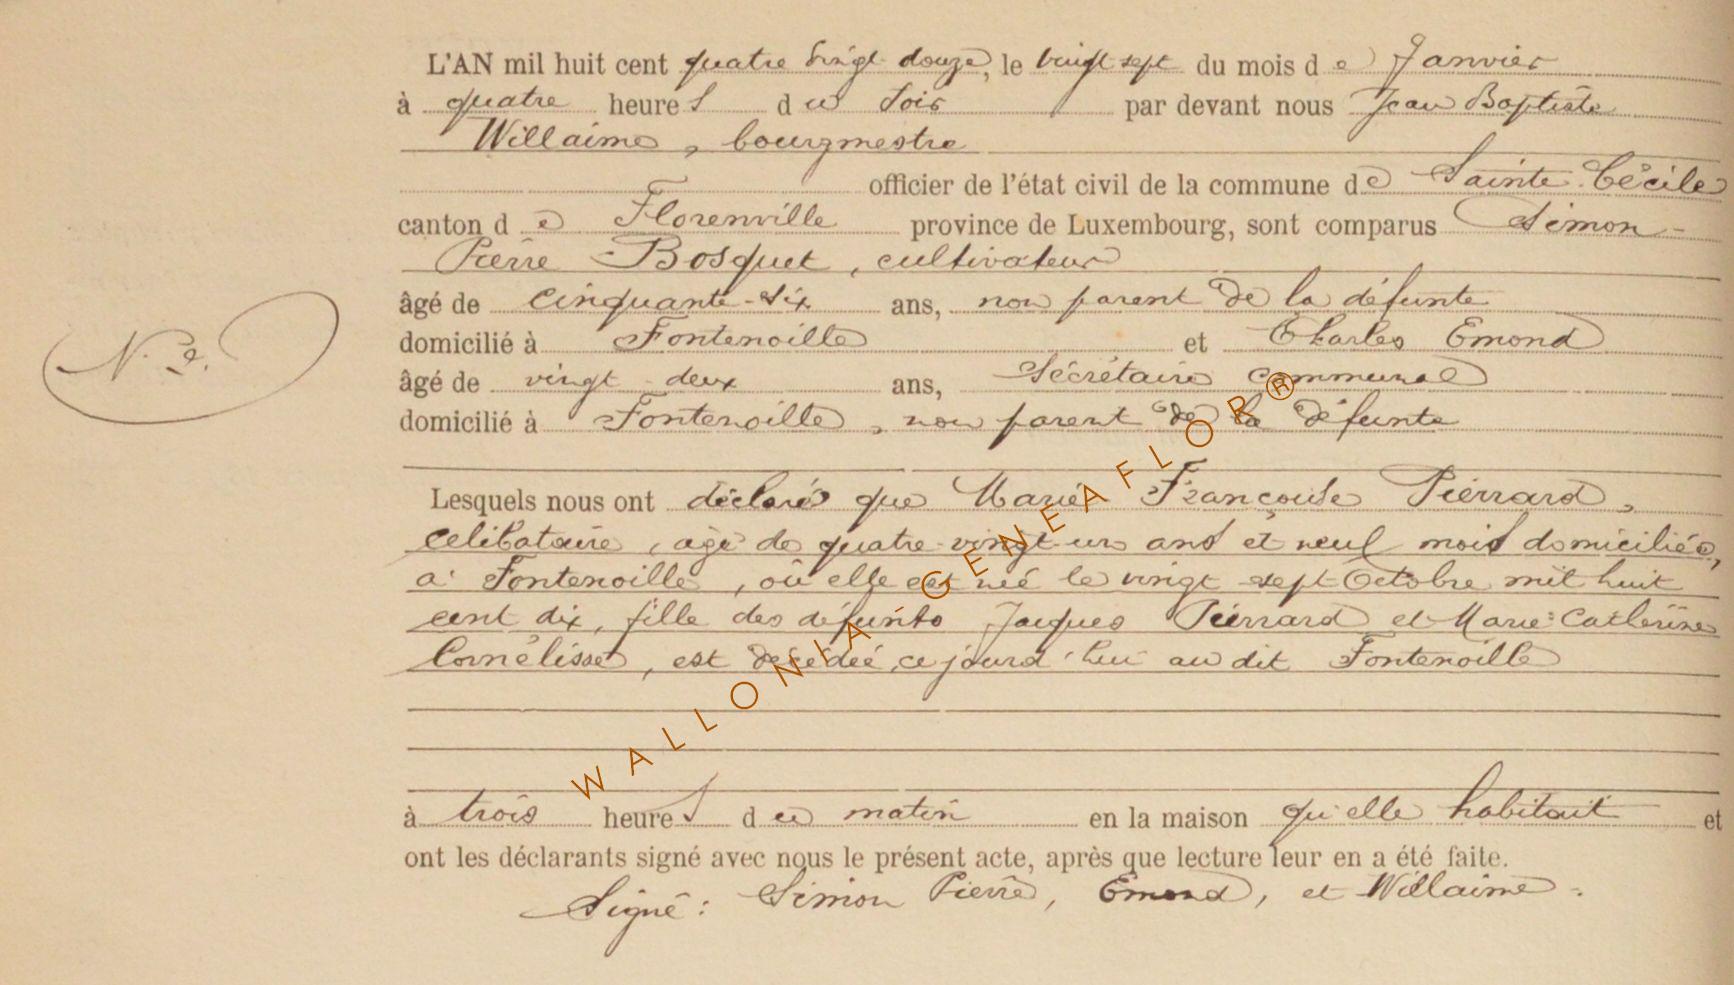 L'AN mil huit cent quatre vingt douze, le vingt sept du mois de Janvier
à quatre heures du soir par devant nous Jean Baptiste
Willaime, bourgmestre
officier de l'état civil de la commune de Sainte Cécile
canton de Florenville province de Luxembourg, sont comparus Simon-
Pierre Bosquet, cultivateur
âgé de cinquante-six ans, non parent de la défunte
domicilié à Fontenoille et Charles Emond
âgé de vingt deux ans, Sécrétaire communal
domicilié à Fontenoille, non parent de la défunte
N. 2.
Lesquels nous ont déclaré que Marie Françouise Piérrard,
célibataire, agé de quatre-vingt-un ans et neuf mois domiciliée,
à Fontenoille, où elle est née le vingt sept Octobre mil huit
cent dix, fille des défunts Jacques Piérrard et Marie-Catherine
Cornélisse, est décédée, ce jourd'hui au dit Fontenoille
à trois heures du matin en la maison qu'elle habitait et
ont les déclarants signé avec nous le présent acte, après que lecture leur en a été faite.
Signé : Simon Pierre, Emond, et Willaime.
WALLONIA - GENEAFLOR®